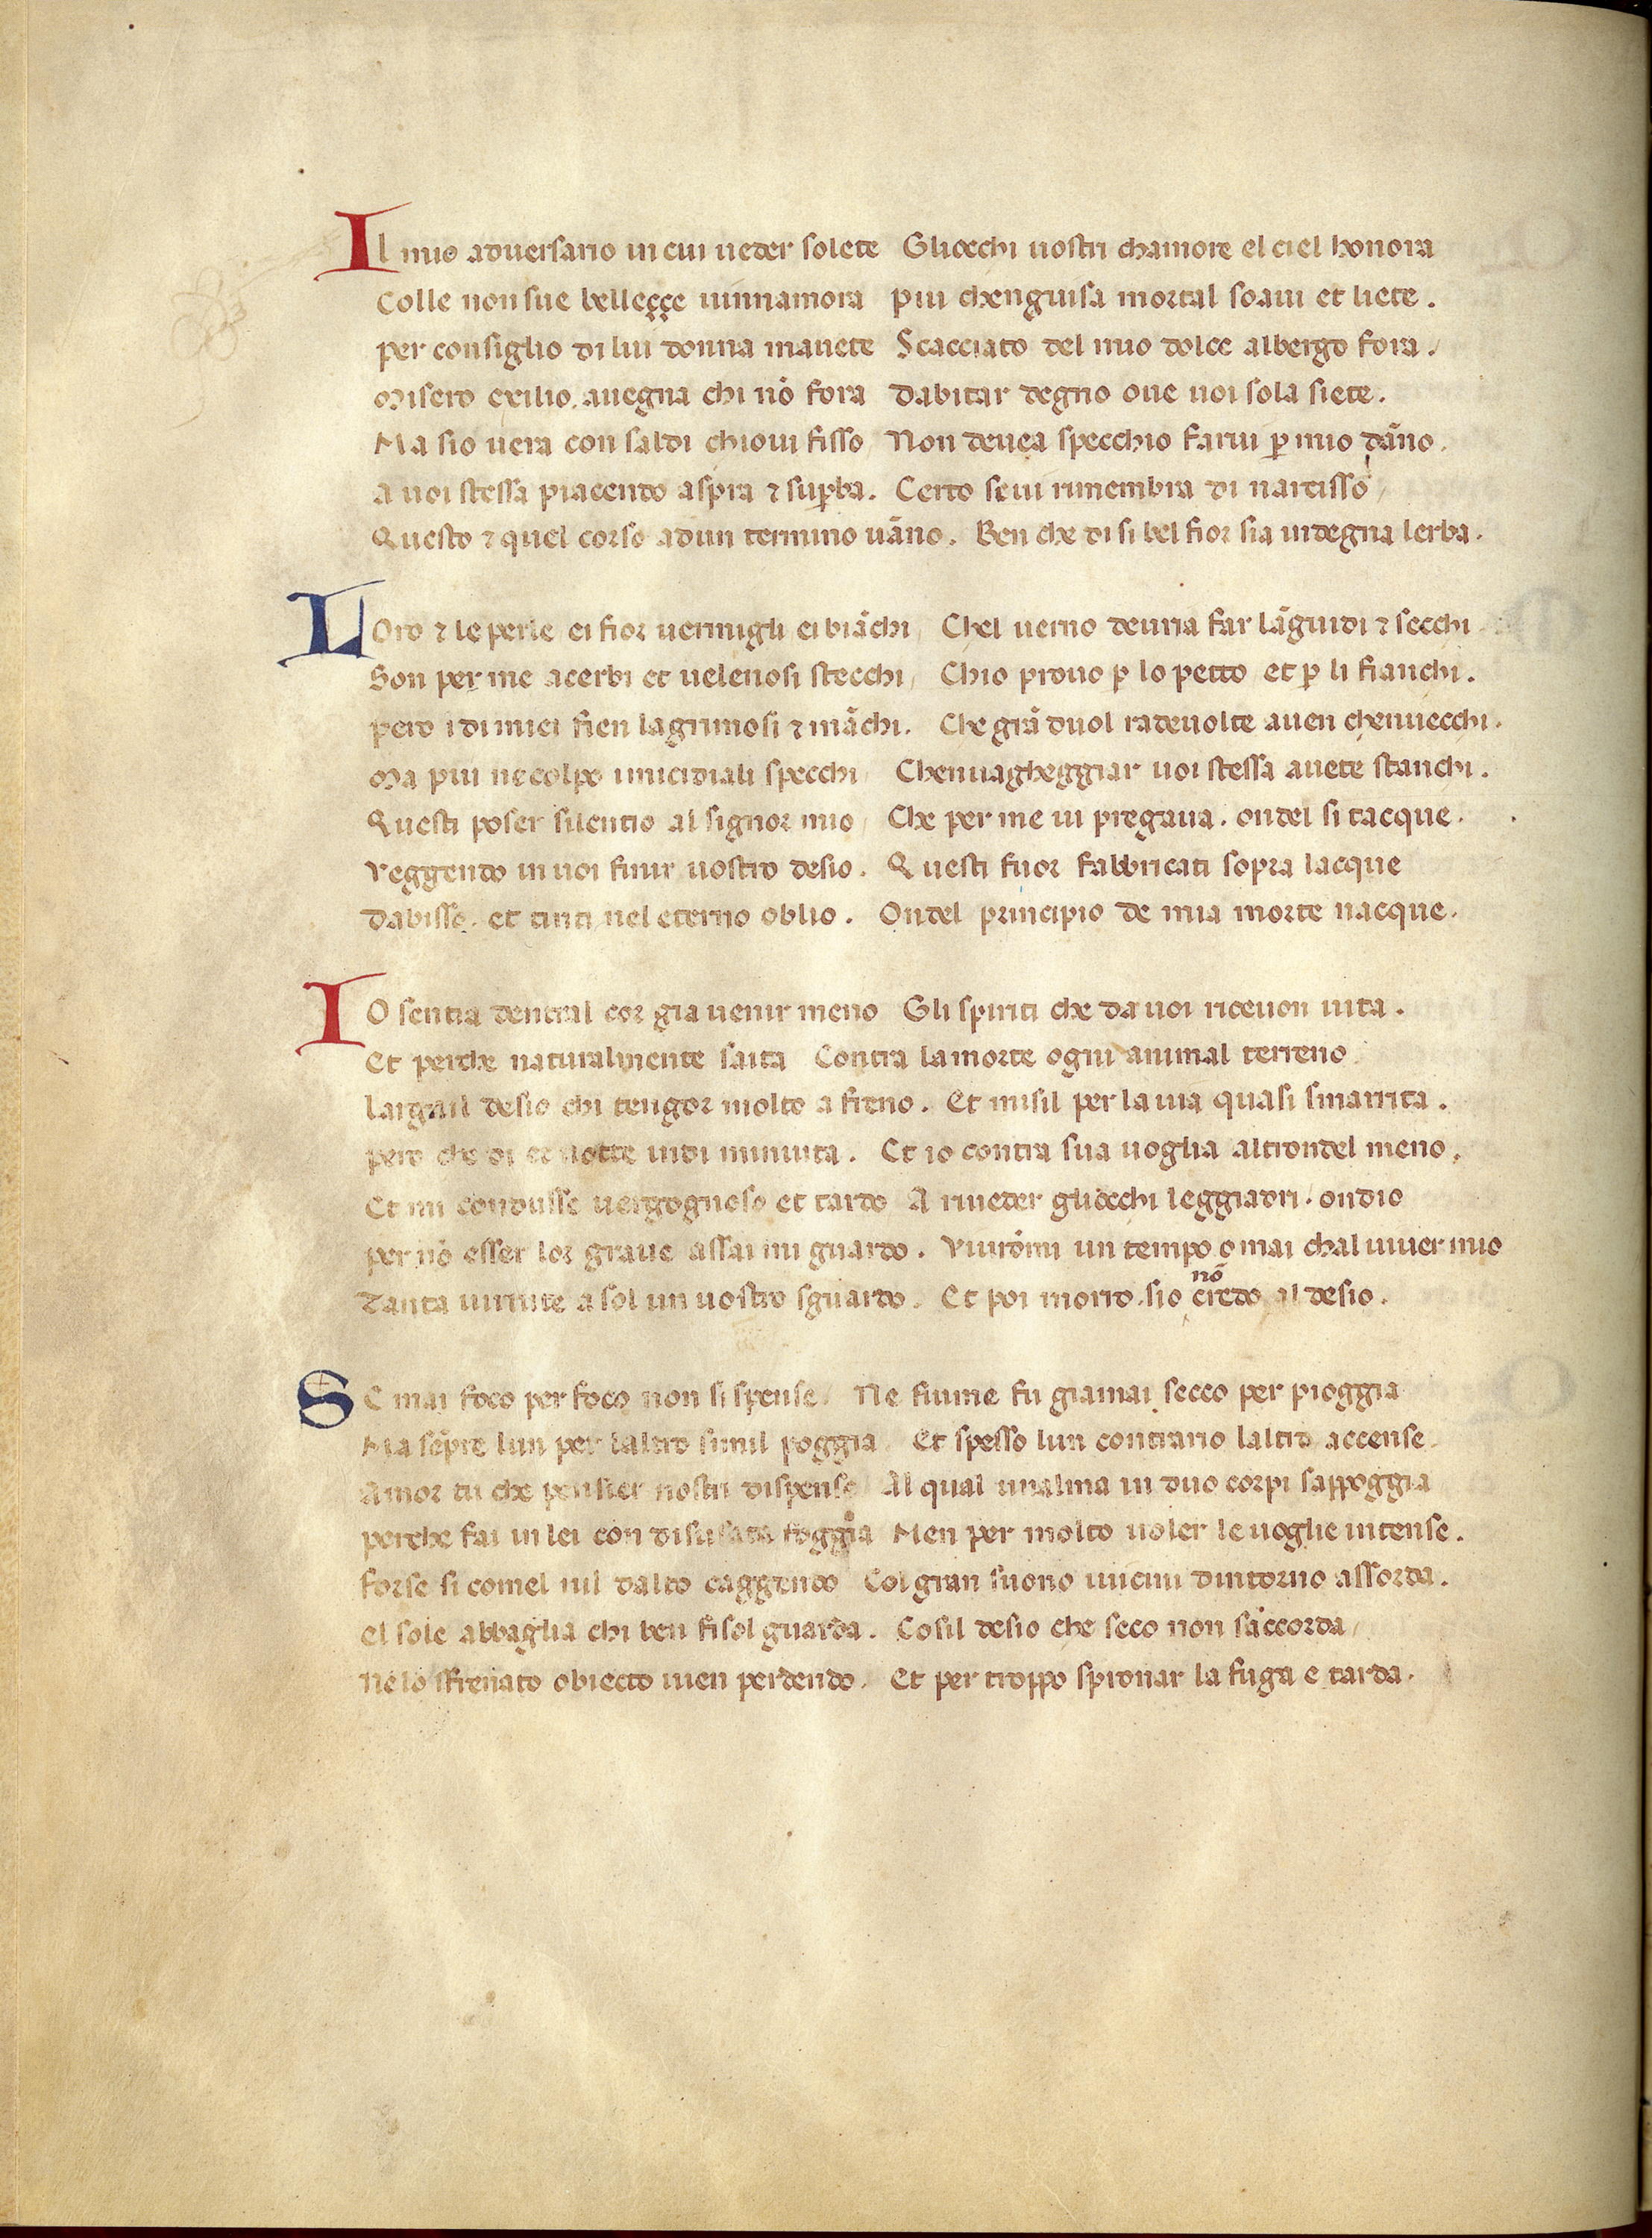 Il mio aduersario in cui ueder solete Gliocchi uostri chamore el ciel honora
Colle non sue belleççe uinnamora piu chenguisa mortal soaui et liete.
per consiglio di lui donna mauete Scacciato del mio dolce albergo fora.
Misero exilio. auegna chi nō fora Dabitar degno oue uoi sola siete.
Ma sio uera con saldi chioui fisso Non deuea specchio farui ꝑ mio dāno.
A uoi stessa piacendo aspra ⁊ suꝑba. Certo seui rimembra di narcisso
Questo ⁊ quel corso adun termino uāno. Ben che di si bel fior sia indegna lerba.
LOro ⁊ le perle ei fior uermigli ei biāchi Chel uerno deuria far lāguidi ⁊ secchi
Son per me acerbi et uelenosi stecchi Chio prouo ꝑ lo petto et ꝑ li fianchi.
pero i di miei fien lagrimosi ⁊ māchi. Che grā duol radeuolte auen chenuecchi.
Ma piu ne colpo i micidiali specchi Chenuagheggiar uoi stessa auete stanchi.
Questi poser silentio al signor mio Che per me ui pregaua. ondel si tacque.
Veggendo in uoi finir uostro desio. Questi fuor fabbricati sopra lacque
dabisso. et tinti nel eterno oblio. Ondel principio de mia morte nacque.
IO sentia dentral cor gia uenir meno Gli spiriti che da uoi riceuon uita.
Et perche naturalmente saita Contra la morte ogni animal terreno
Largail desio chi tengor molto a freno. Et misil per la uia quasi smarrita.
pero che di et notte indi minuita. Et io contra sua uoglia altrondel meno.
Et mi condusse uergognoso et tardo A riueder gliocchi leggiadri. ondio
per nō esser lor graue assai mi guardo. Viurōmi un tempo omai chal uiuer mio
Tanta uirtute a sol un uostro sguardo. Et poi morro. sio nō credo al desio.
SE mai foco per foco non si spense. Ne fiume fu giamai secco per pioggia
Ma sēpre lun per laltro simil poggia Et spesso lun contrario laltro accense.
Amor tu che pensier nostri dispense Al qual unalma in duo corpi sappoggia
perche fai in lei con disusata foggia Men per molto uoler le uoglie intense.
forse si comel nil dalto caggendo Col gran suono iuicini dintorno assorda.
el sole abbaglia chi ben fisol guarda. Cosil desio che seco non saccorda
Nelo sfrenato obiecto uien perdendo. Et per troppo spronar la fuga e tarda.